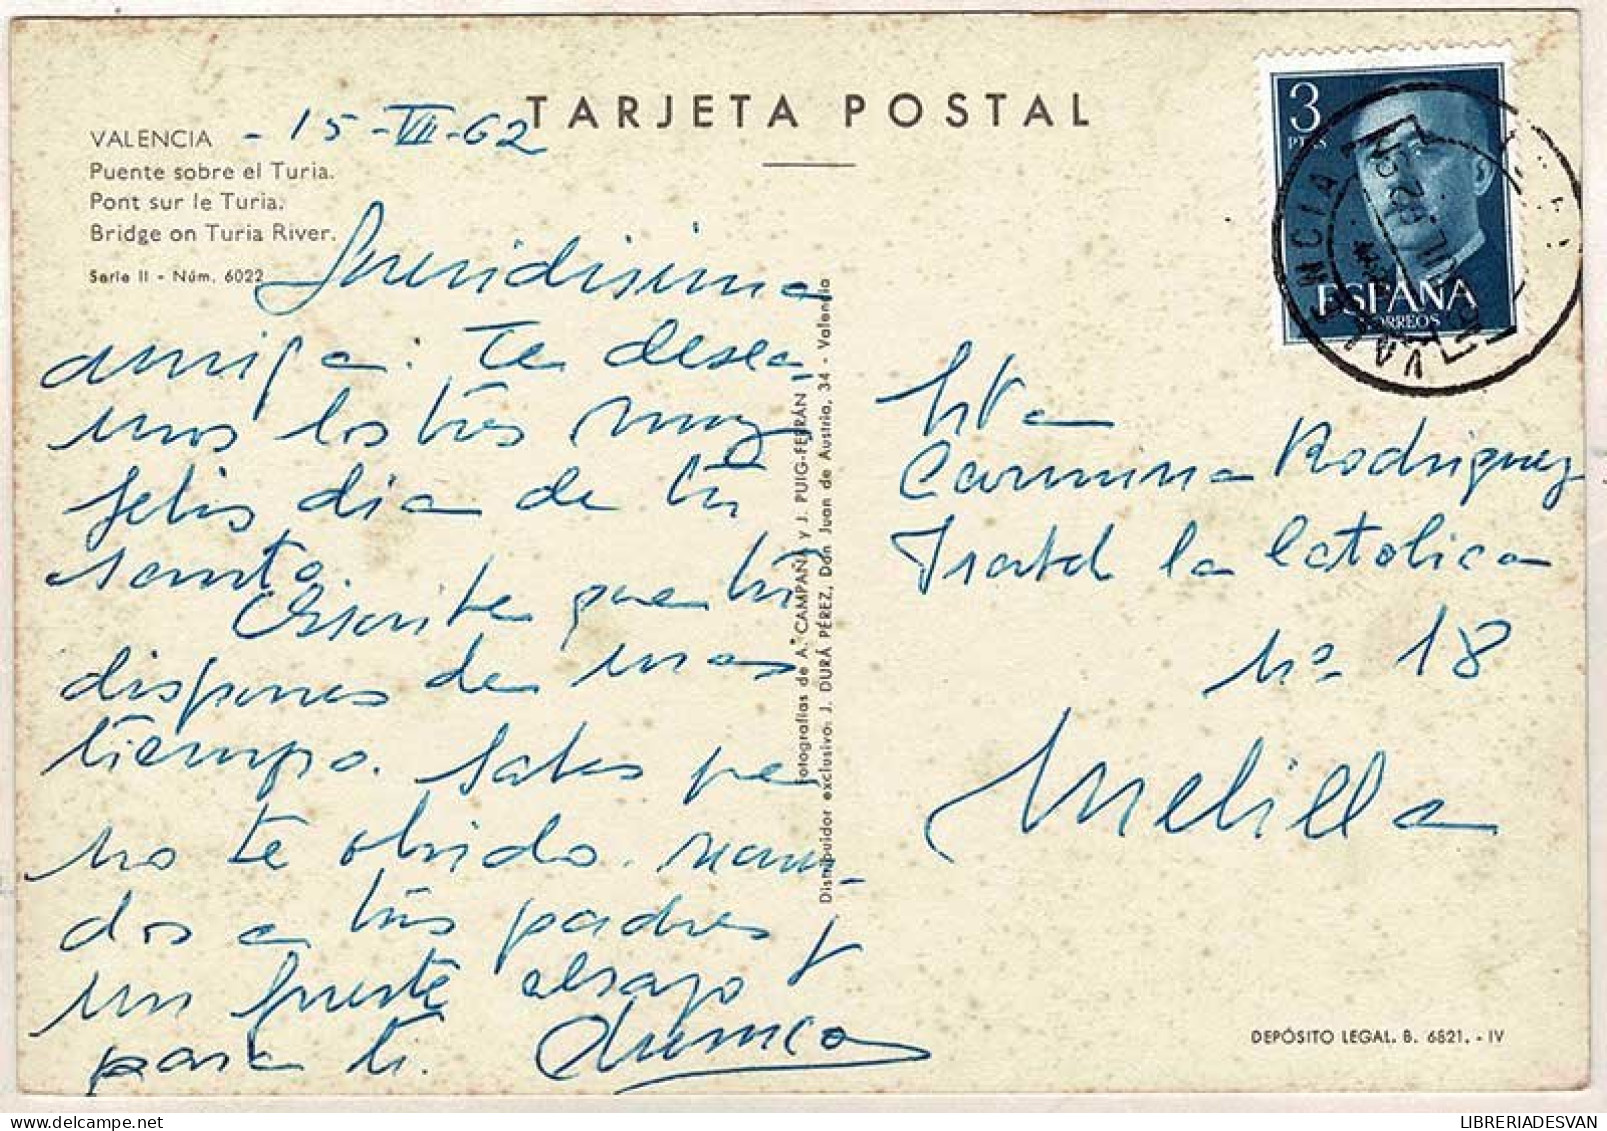 TARJETA POSTAL
VALENCIA - 15-VII-62
Puente sobre el Turia.
Pont sur le Turia.
Bridge on Turia River.
Serie II - Núm. 6022
Queridisima
amiga: Te desea-
mos los tres muy
felis dia de tú
santo.
Escribe que tú
dispones de mas
tiempo. Sabes que
no te olvido. Recuer-
dos a tús padres y
un fuerte abrazo
para ti.
Fotografías de A. CAMPAÑÁ y J. PUIG-FERRÁN
Distribuidor exclusivo: J. DURÁ PÉREZ, Don Juan de Austria, 34 - Valencia
3
PTAS
ESPAÑA
CORREOS
VALENCIA
Srta
Carmina Rodriguez
Isabel la Catolica
nº 18
Melilla
DEPÓSITO LEGAL. B. 6821. - IV
LIBRERIADESVAN